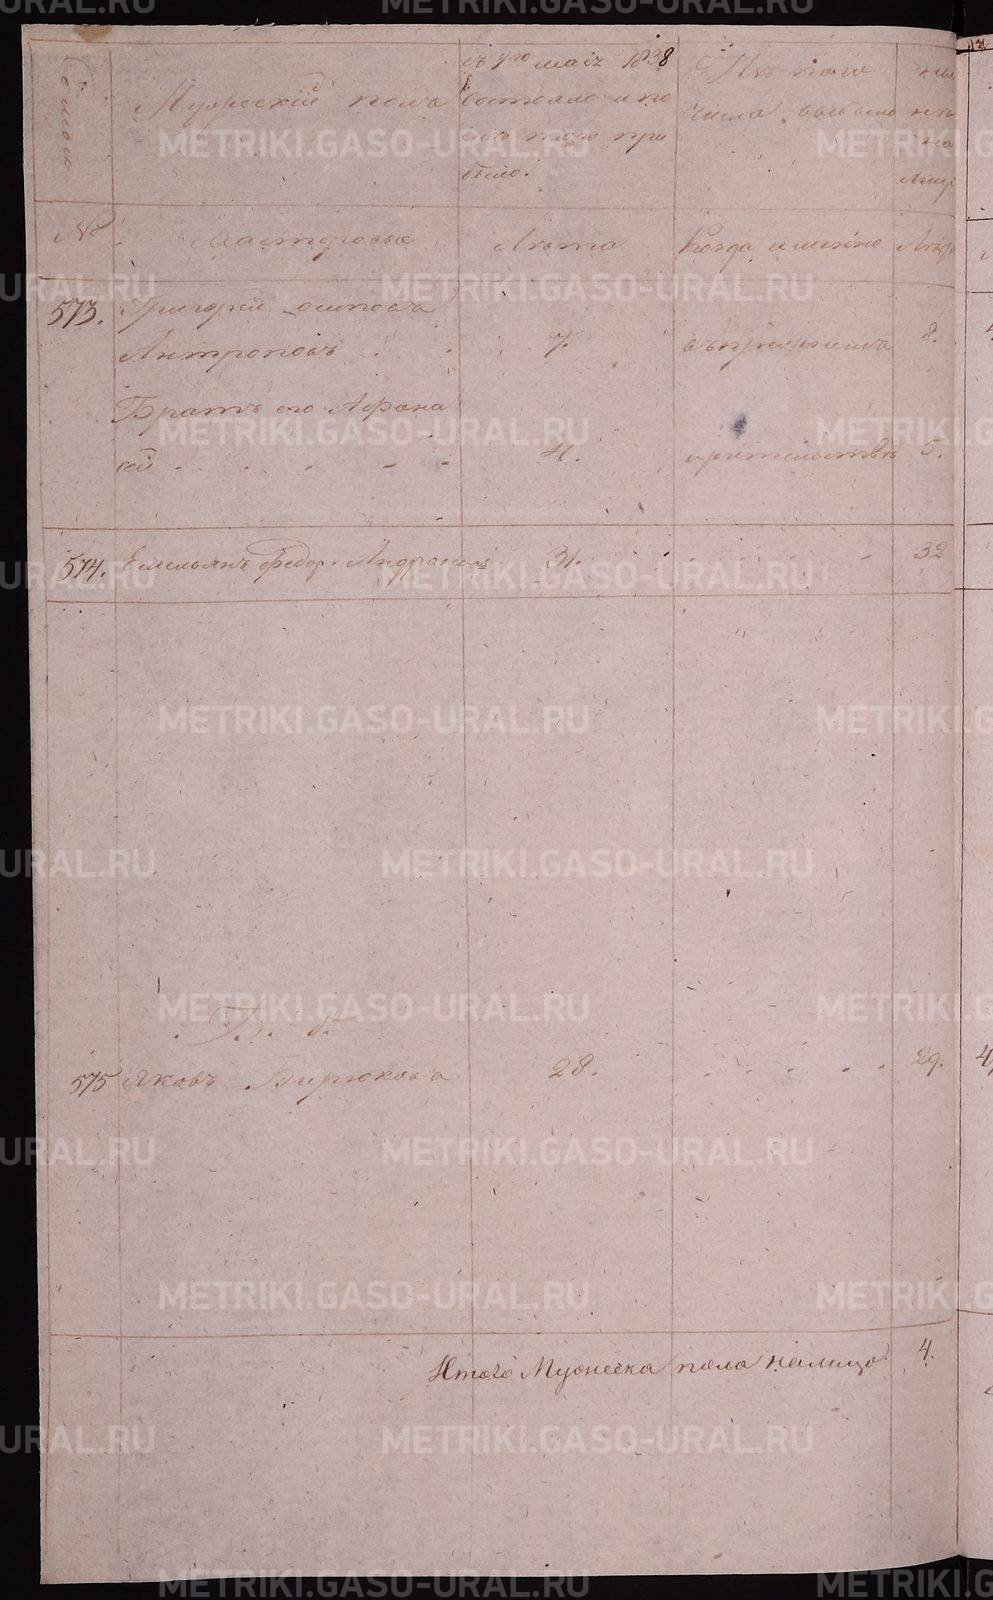 Мужескій полъ
съ 9го маія 1838
состояло и по
слѣ того при
было.
Изъ того
числа выбыло
нынѣ
на
лицо
№
Мастеровые
Лѣта
Когда именно
Лѣта
573.
Григорій Осиповъ
Антроповъ
7.
8.
Братъ его Афана
сій
4.
5.
574. Емельянъ Федор. Андроновъ 31. 32
575 Яковъ Бирюковъ 28. 29.
Итого Мужеска пола налицо 4.
METRIKI.GASO-URAL.RU